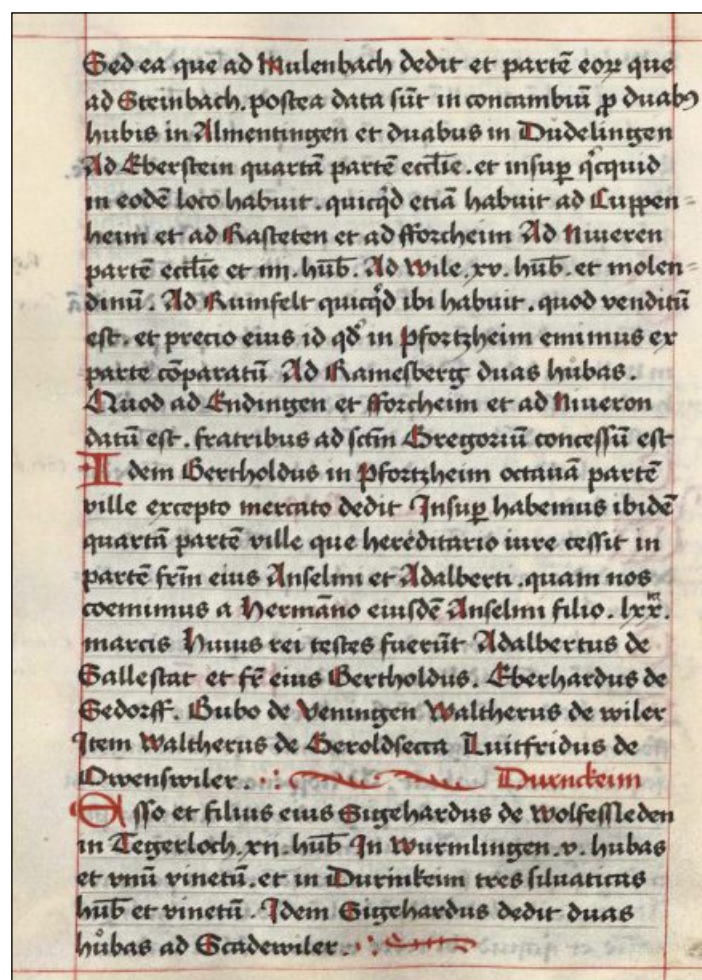 Sed ea que ad Mulenbach dedit et partē eoꝝ que
ad Steinbach. postea data sūt in concambiū ꝓ duabꝰ
hubis in Almentingen et duabus in Dudelingen
Ad Eberstein quartā partē eccl̄ie. et insuꝑ qͥcquid
in eodē loco habuit. quicqͥd etiā habuit ad Luppen=
heim et ad Rasteten et ad fforcheim Ad Niueren
partē eccl̄ie et iiij. hub̄. Ad Wile. xv. hub̄. et molen=
dinū. Ad Rumfelt quicqͥd ibi habuit. quod venditū
est. et precio eius id qd̓ in Pfortzheim emimus ex
parte cōparatū Ad Ramesberg duas hůbas.
Quod ad Endingen et fforcheim et ad Niueron
datū est. fratribus ad sctm̄ Gregoriū concessū est
Idem Bertholdus in Pfortzheim octauā partē
ville excepto mercato dedit Insuꝑ habemus ibidē
quartā partē ville que hereditario iure cessit in
partē frm̄ eius Anselmi et Adalberti. quam nos
coemimus a Hermāno eiusdē Anselmi filio. lxx.
marcis Huius rei testes fuerūt Adalbertus de
Sallestat et fr̄ eius Bertholdus. Eberhardus de
Sedorff. Bubo de Veningen Waltherus de wiler
Item Waltherus de Geroldsecca Luitfridus de
Owenswiler. Durnckeim
Asso et filius eius Sigehardus de Wolfessleden
in Tegerloch. xij. hub̄ In Wurmlingen. v. hubas
et vnū vinetū. et in Durinkeim tres siluaticas
hub̄ et vinetū. Idem Sigehardus dedit duas
hůbas ad Scadewiler.